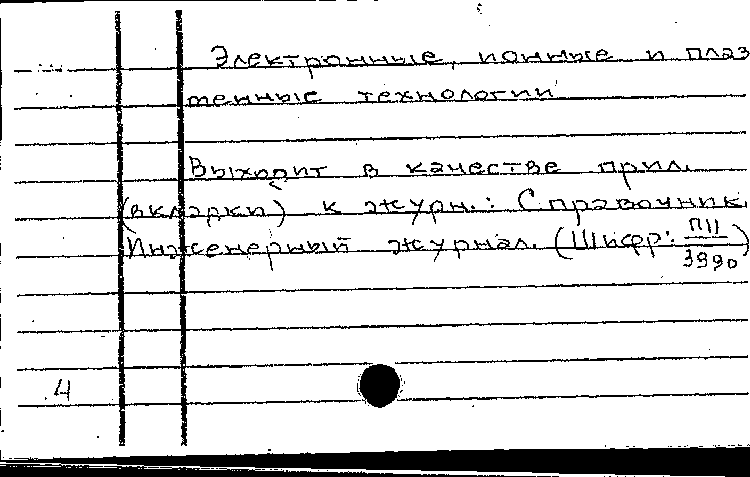 Электронные, ионные и плаз
менные технологии
Выходит в качестве прил.
(вкладки) к журн.: Справочник.
Инженерный журнал. (Шифр: П11/3990)
4